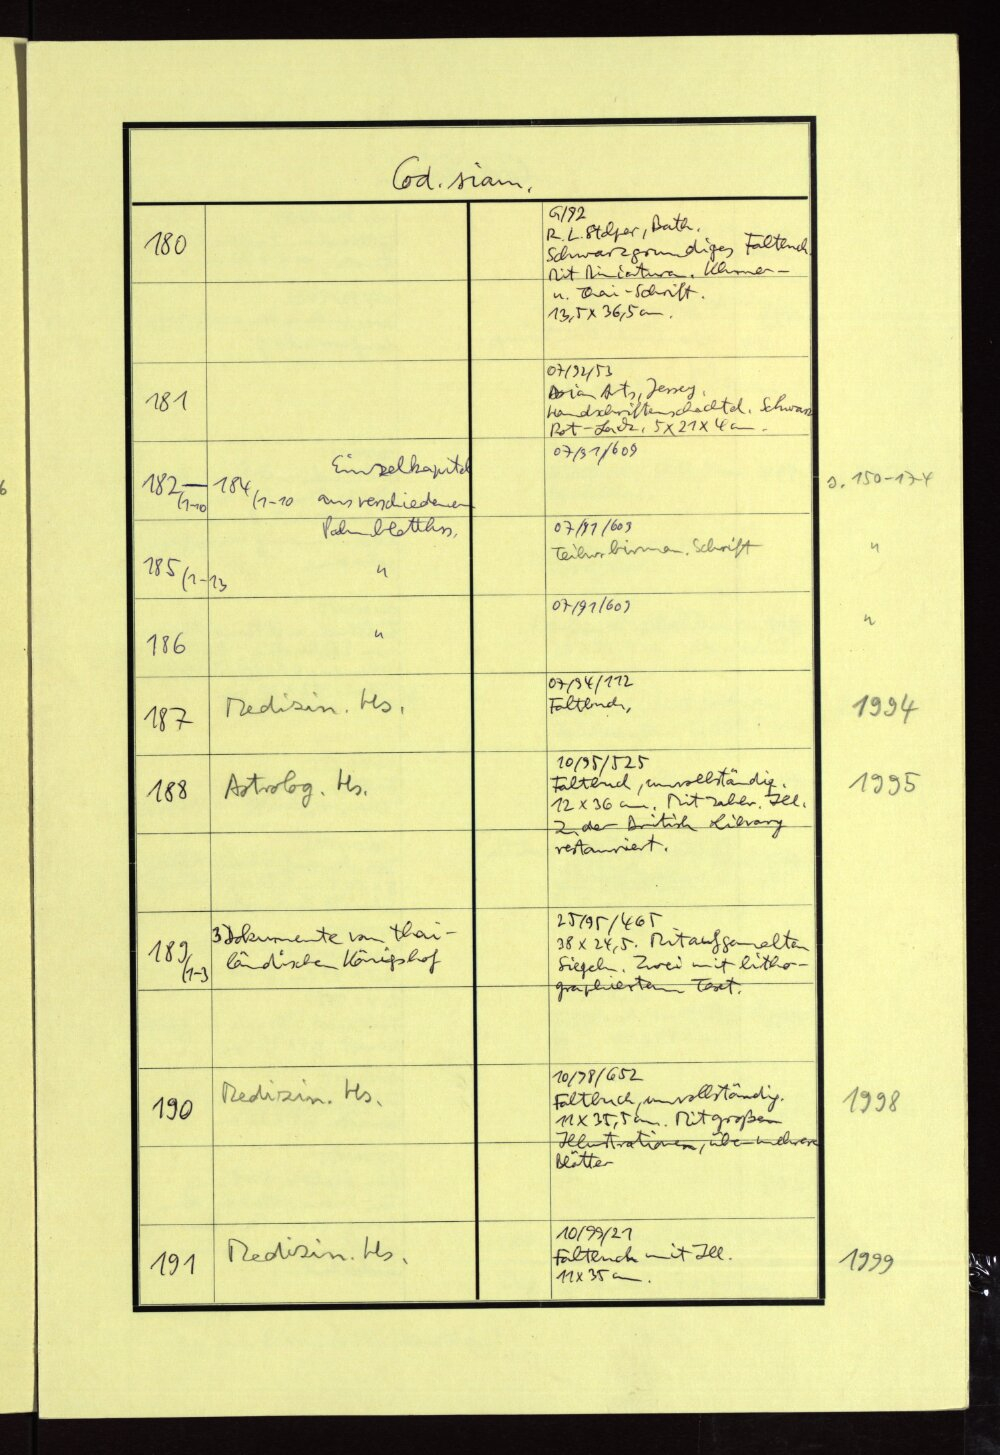 Cod. siam.
180
G/92
R. L. Stolper, Bath.
Schwarzgrundiges Faltbuch
Mit Miniaturen. Khmer-
u. Thai-Schrift.
13,5 x 36,5 cm.
181
07/92/53
Asian Arts, Jersey.
Handschriftenschachtel. Schwarz
Rot-Lack. 5 x 21 x 4 cm.
182/1-10 — 184/1-10 Einzelkapitel
aus verschiedenen
Palmblatthss.
07/91/609
s. 150-174
185/1-13 "
07/91/609
Teilw. birman. Schrift
"
186 "
07/91/609
"
187 Medizin. Hs.
07/94/112
Faltbuch.
1994
188 Astrolog. Hs.
10/95/525
Faltbuch, unvollständig.
12 x 36 cm. Mit zahlr. Ill.
In der British Library
restauriert.
1995
189/1-3 3 Dokumente vom thai-
ländischen Königshof
25/95/465
38 x 24,5. Mit aufgemalten
Siegeln. Zwei mit litho-
graphiertem Text.
190 Medizin. Hs.
10/98/652
Faltbuch, unvollständig.
11 x 35,5 cm. Mit großen
Illustrationen, über mehrere
Blätter
1998
191 Medizin. Hs.
10/99/21
Faltbuch mit Ill.
11 x 35 cm.
1999
6